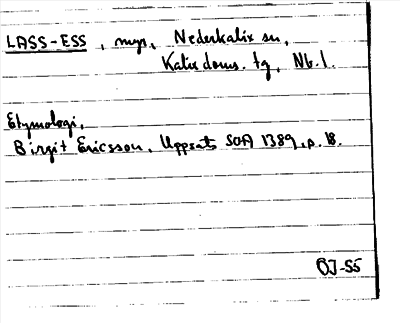 LASS-ESS, myr, Nederkalix sn,
Kalix doms. tg, Nb. l.
Etymologi,
Birgit Ericsson, Uppsats SOA 1389, p. 18.
BJ-55